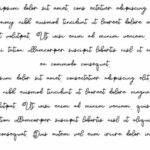 ipsum dolor sit amet, cons ectetuer adipiscing
nummy nibh euismod tincidunt ut laoreet dolore
volutpat. Ut wisi enim ad minim veniam,
tation ullamcorper suscipit lobortis nisl ut
ea commodo consequat.
ipsum dolor sit amet, consectetuer adipiscing elit,
nibh euismod tincidunt ut laoreet dolore magna
volutpat. Ut wisi enim ad minim veniam, quis
tation ullamcorper suscipit lobortis nisl ut aliquip
consequat. Duis autem vel eum iriure dolor in